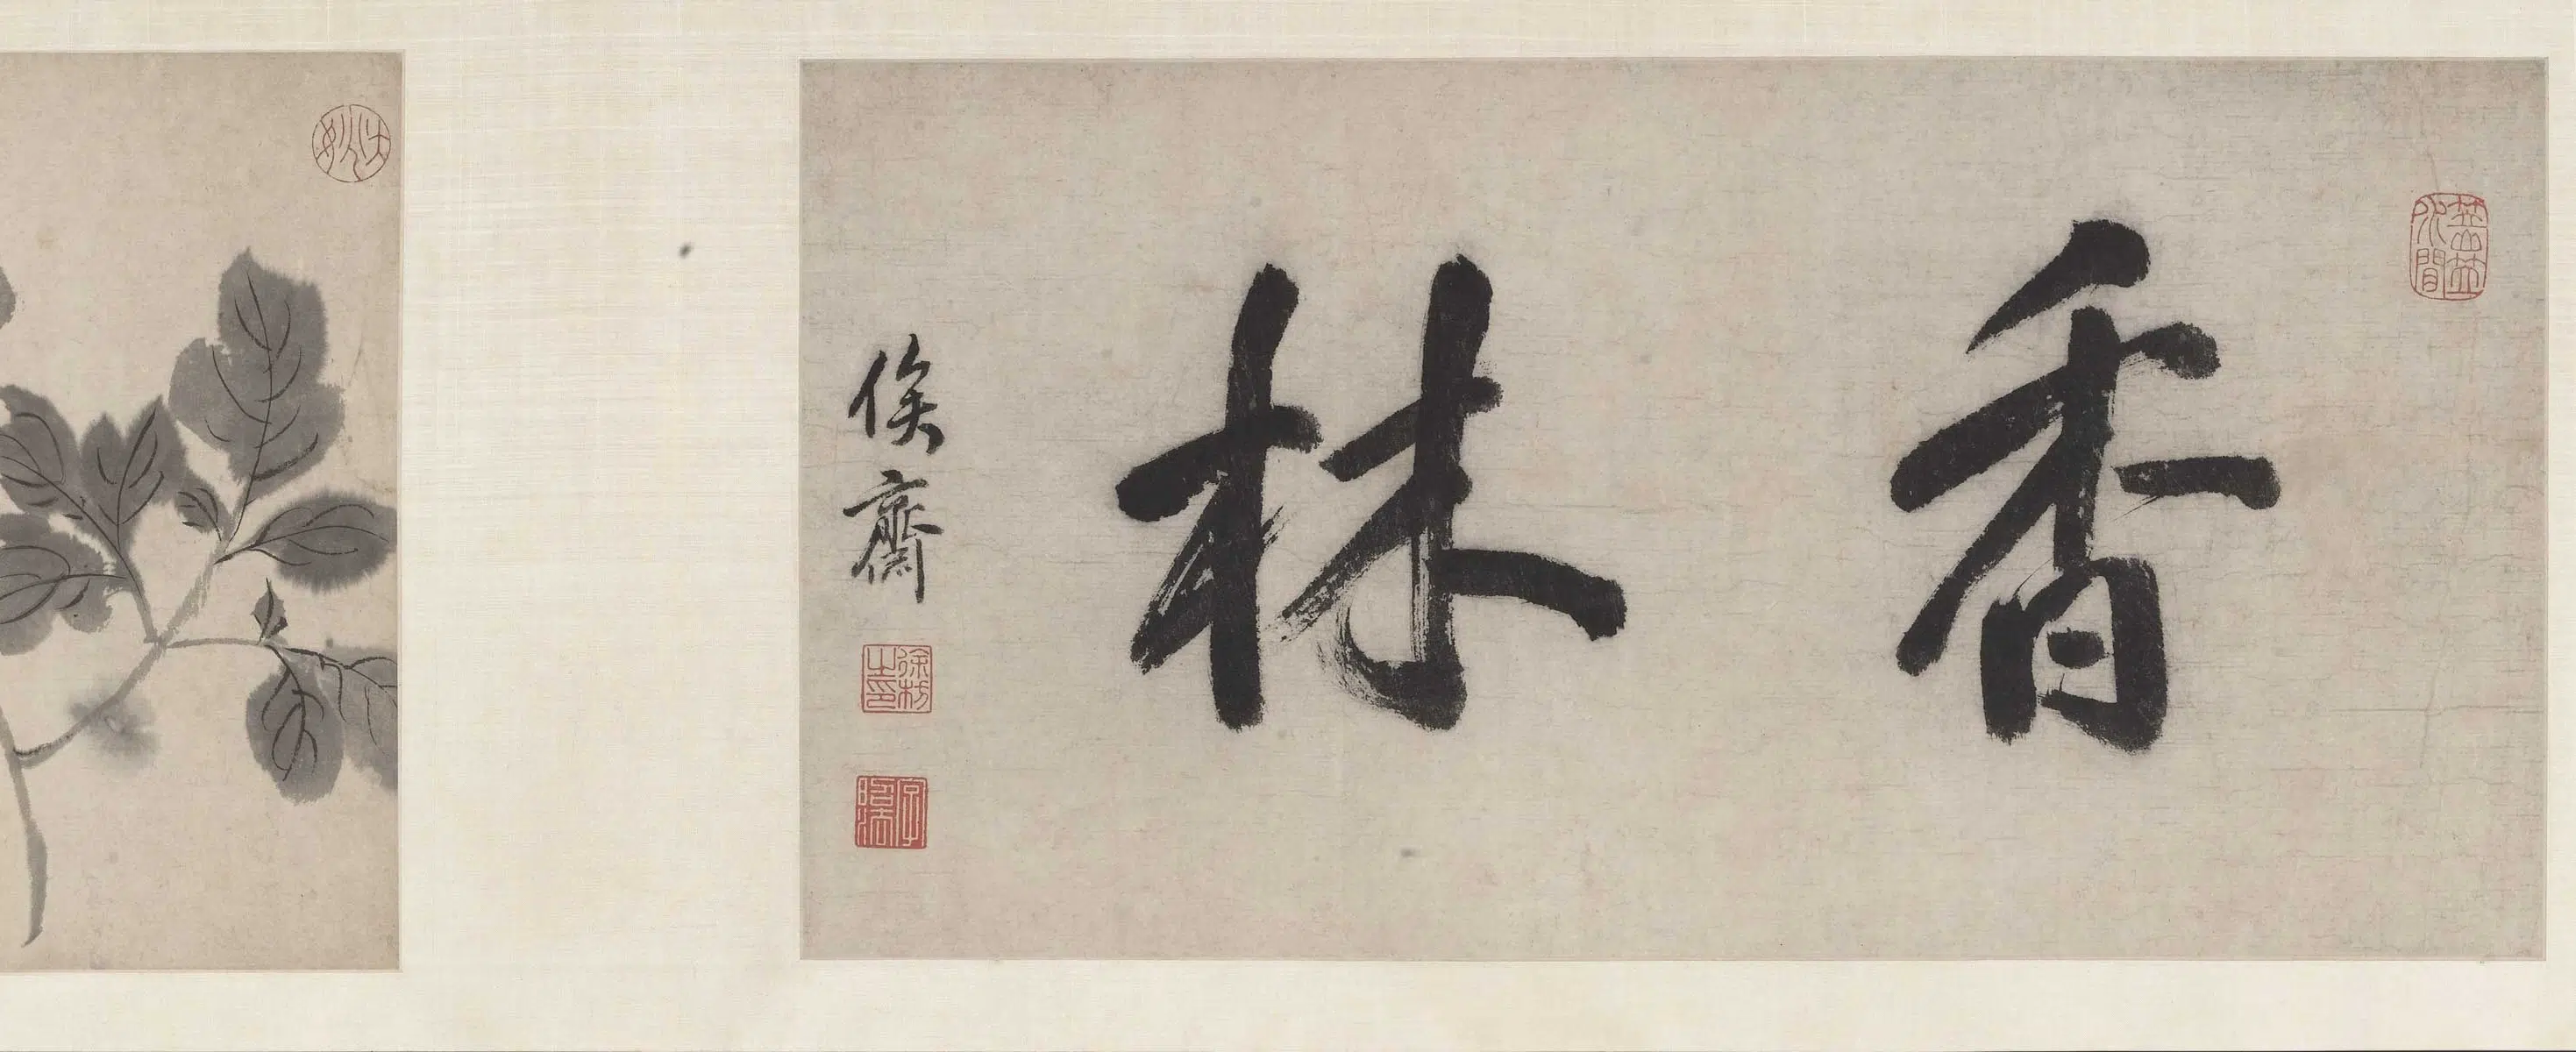 香林
俟齋
徐枋之印